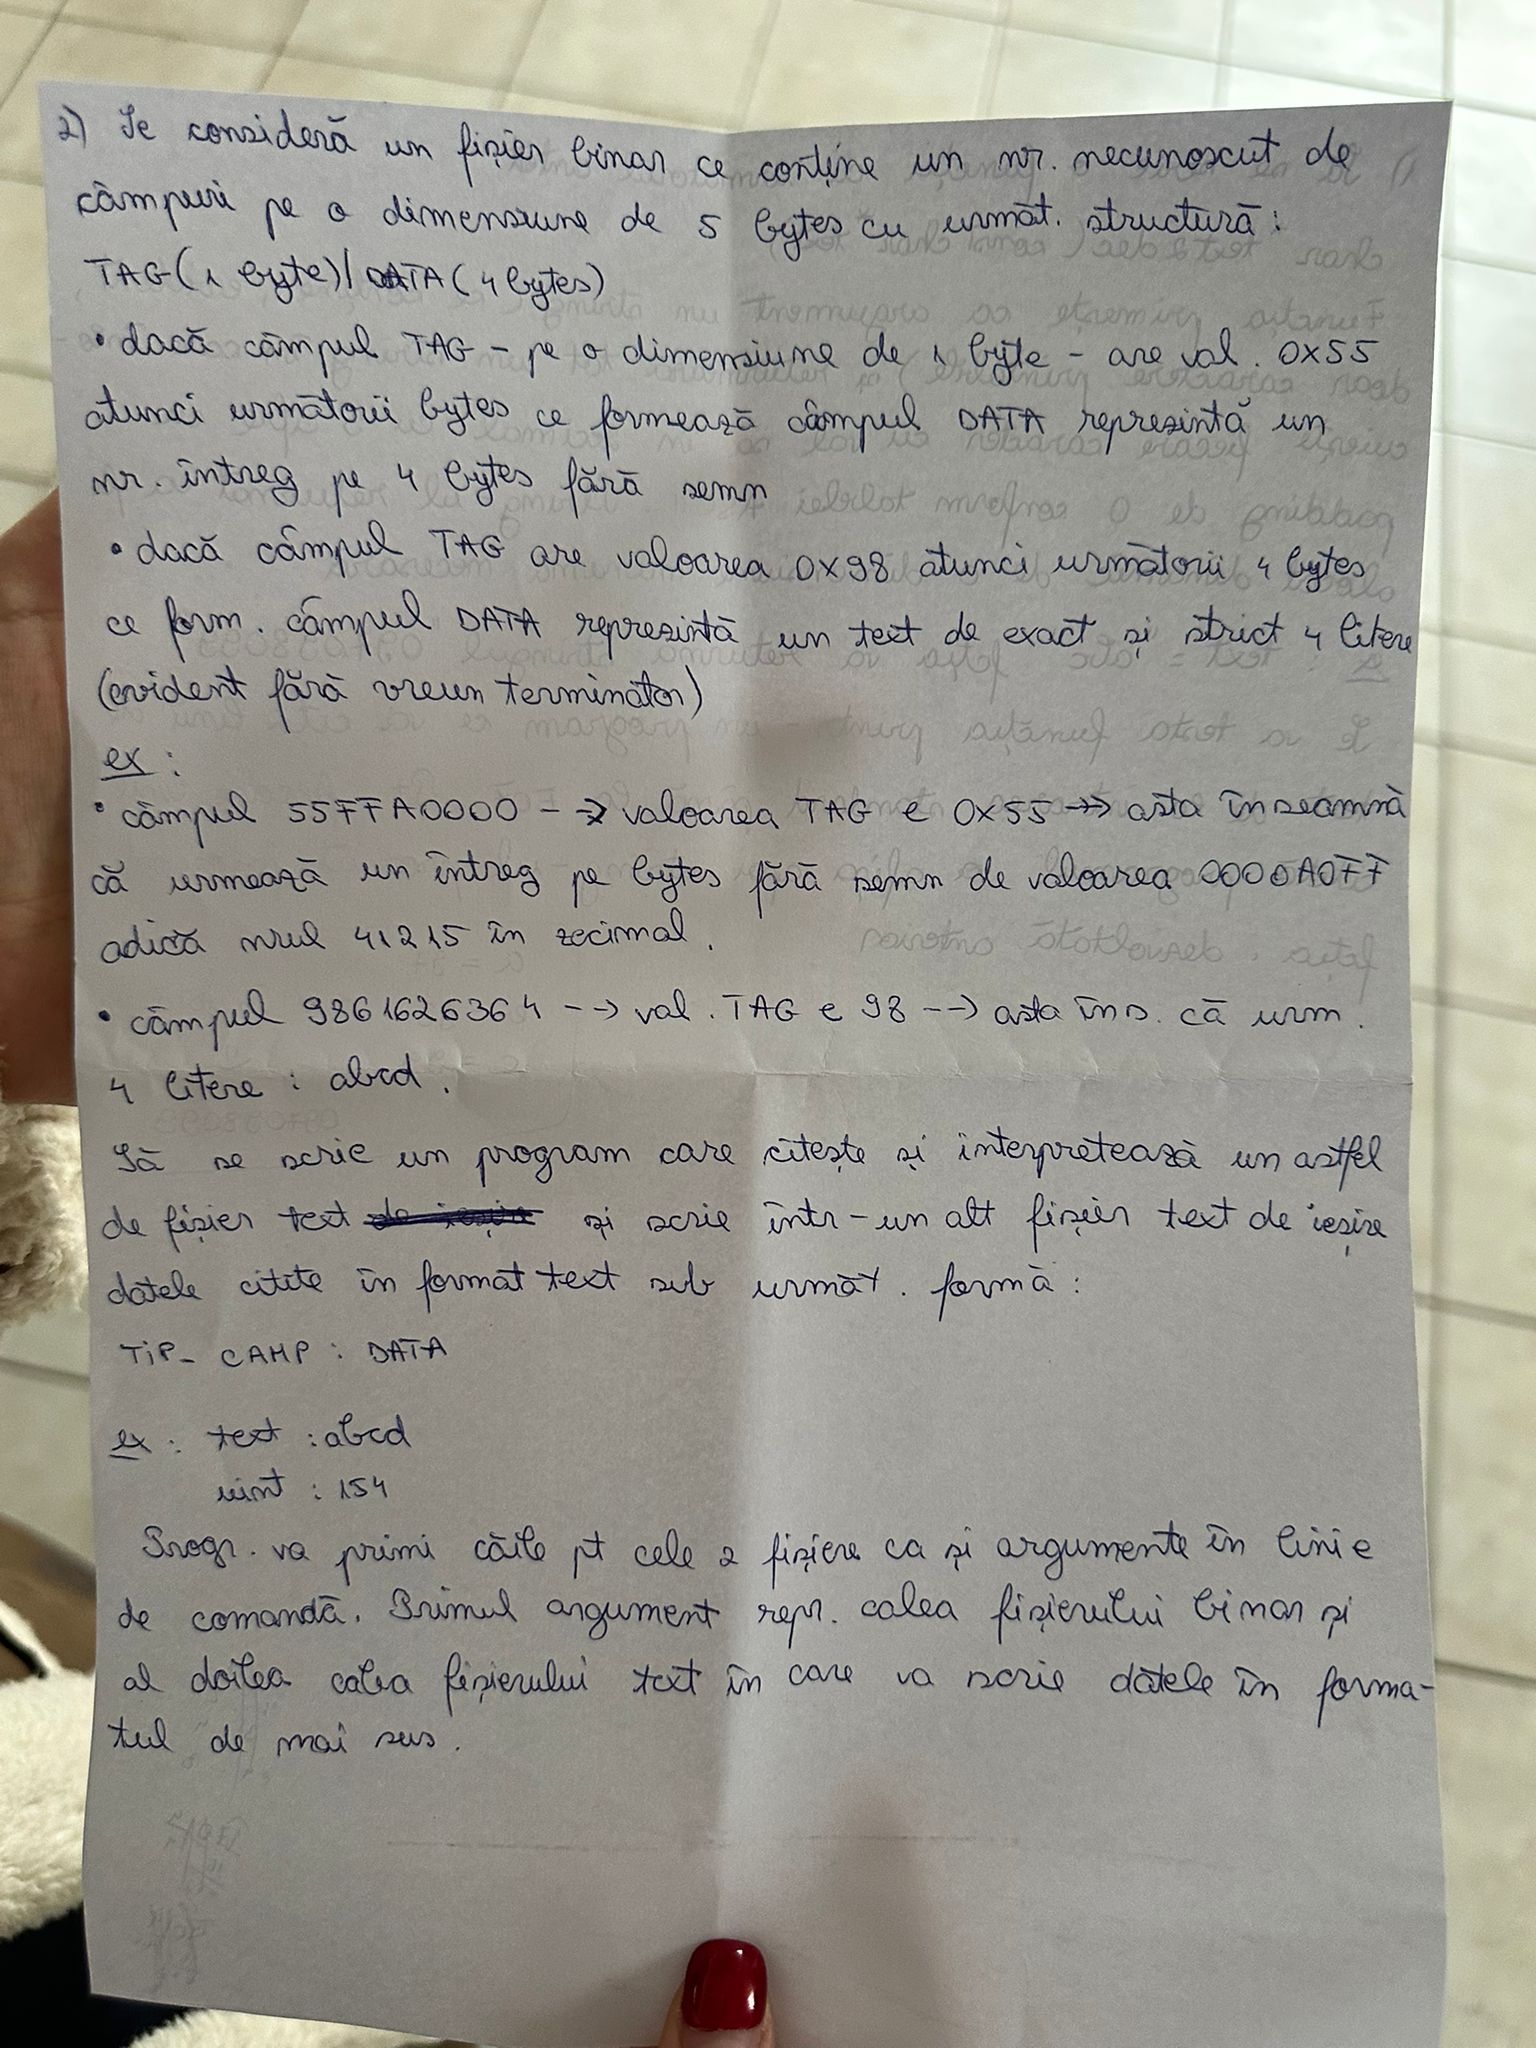 2) Se consideră un fișier binar ce conține un nr. necunoscut de
câmpuri pe o dimensiune de 5 bytes cu următ. structură:
TAG(1 byte)/DATA(4 bytes)
• dacă câmpul TAG - pe o dimensiune de 1 byte - are val. 0x55
atunci următorii bytes ce formează câmpul DATA reprezintă un
nr. întreg pe 4 bytes fără semn
• dacă câmpul TAG are valoarea 0x98 atunci următorii 4 bytes
ce form. câmpul DATA reprezintă un text de exact și strict 4 litere
(evident fără vreun terminator)
ex:
• câmpul 55FFA0000 --> valoarea TAG e 0x55 --> asta înseamnă
că urmează un întreg pe bytes fără semn de valoarea 0000A0FF
adică nrul 41215 în zecimal.
• câmpul 9861626364 --> val. TAG e 98 --> asta îns. că urm.
4 litere : abcd.
Să se scrie un program care citește și interpretează un astfel
de fișier text și scrie într-un alt fișier text de ieșire
datele citite în format text sub următ. formă:
TIP_CAMP : DATA
ex : text : abcd
uint : 154
Progr. va primi căile pt cele 2 fișiere ca și argumente în linie
de comandă. Primul argument repr. calea fișierului binar și
al doilea calea fișierului text în care va scrie datele în forma-
tul de mai sus.